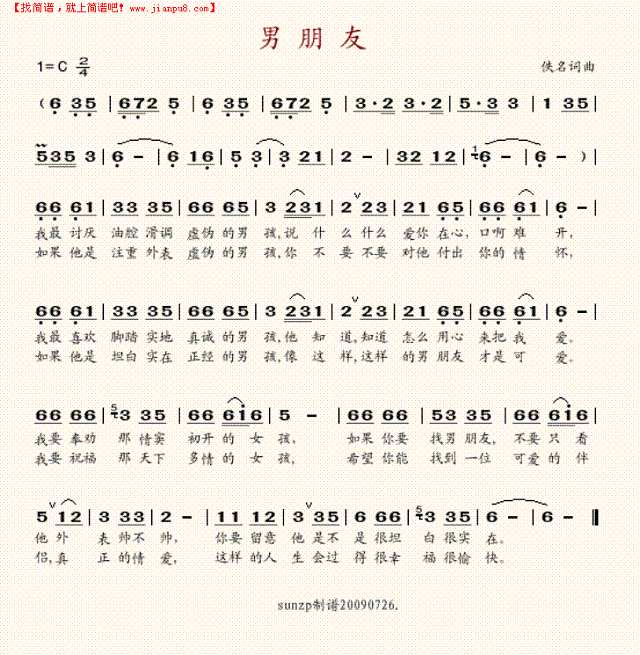 【找简谱，就上简谱吧！www.jianpu8.com】
男朋友
1=C 2/4
佚名词曲
( 6 35 | 672 5 | 6 35 | 672 5 | 3·2 3·2 | 5·3 3 | 1 35 |
535 3 | 6 - | 6 16 | 5 3 | 3 21 | 2 - | 32 12 | 1 6 - | 6 - ) |
66 61 | 33 35 | 66 65 | 3 231 | 2 ∨ 23 | 21 65 | 66 61 | 6 - |
我最 讨厌 油腔 滑调 虚伪 的男 孩,说 什 么 什么 爱你 在心,口啊 难 开,
如果 他是 注重 外表 虚伪 的男 孩,你 不 要 不要 对他 付出 你的 情 怀,
66 61 | 33 35 | 66 65 | 3 231 | 2 ∨ 23 | 21 65 | 66 61 | 6 - |
我最 喜欢 脚踏 实地 真诚 的男 孩,他 知 道,知道 怎么 用心 来把 我 爱。
如果 他是 坦白 实在 正经 的男 孩,像 这 样,这样 的男 朋友 才是 可 爱。
66 66 | 5 3 35 | 66 616 | 5 - | 66 66 | 53 35 | 66 616 |
我要 奉劝 那 情窦 初开 的 女 孩, 如果 你要 找男 朋友, 不要 只 看
我要 祝福 那 天下 多情 的 女 孩, 希望 你能 找到 一位 可爱 的 伴
5 ∨ 12 | 3 33 | 2 - | 11 12 | 3 ∨ 35 | 66 65 | 5 3 35 | 6 - | 6 - ‖
他 外 表 帅不 帅, 你要 留意 他 是不 是 很坦 白 很实 在。
侣,真 正 的情 爱, 这样 的人 生 会过 得 很幸 福 很愉 快。
sunzp制谱20090726.